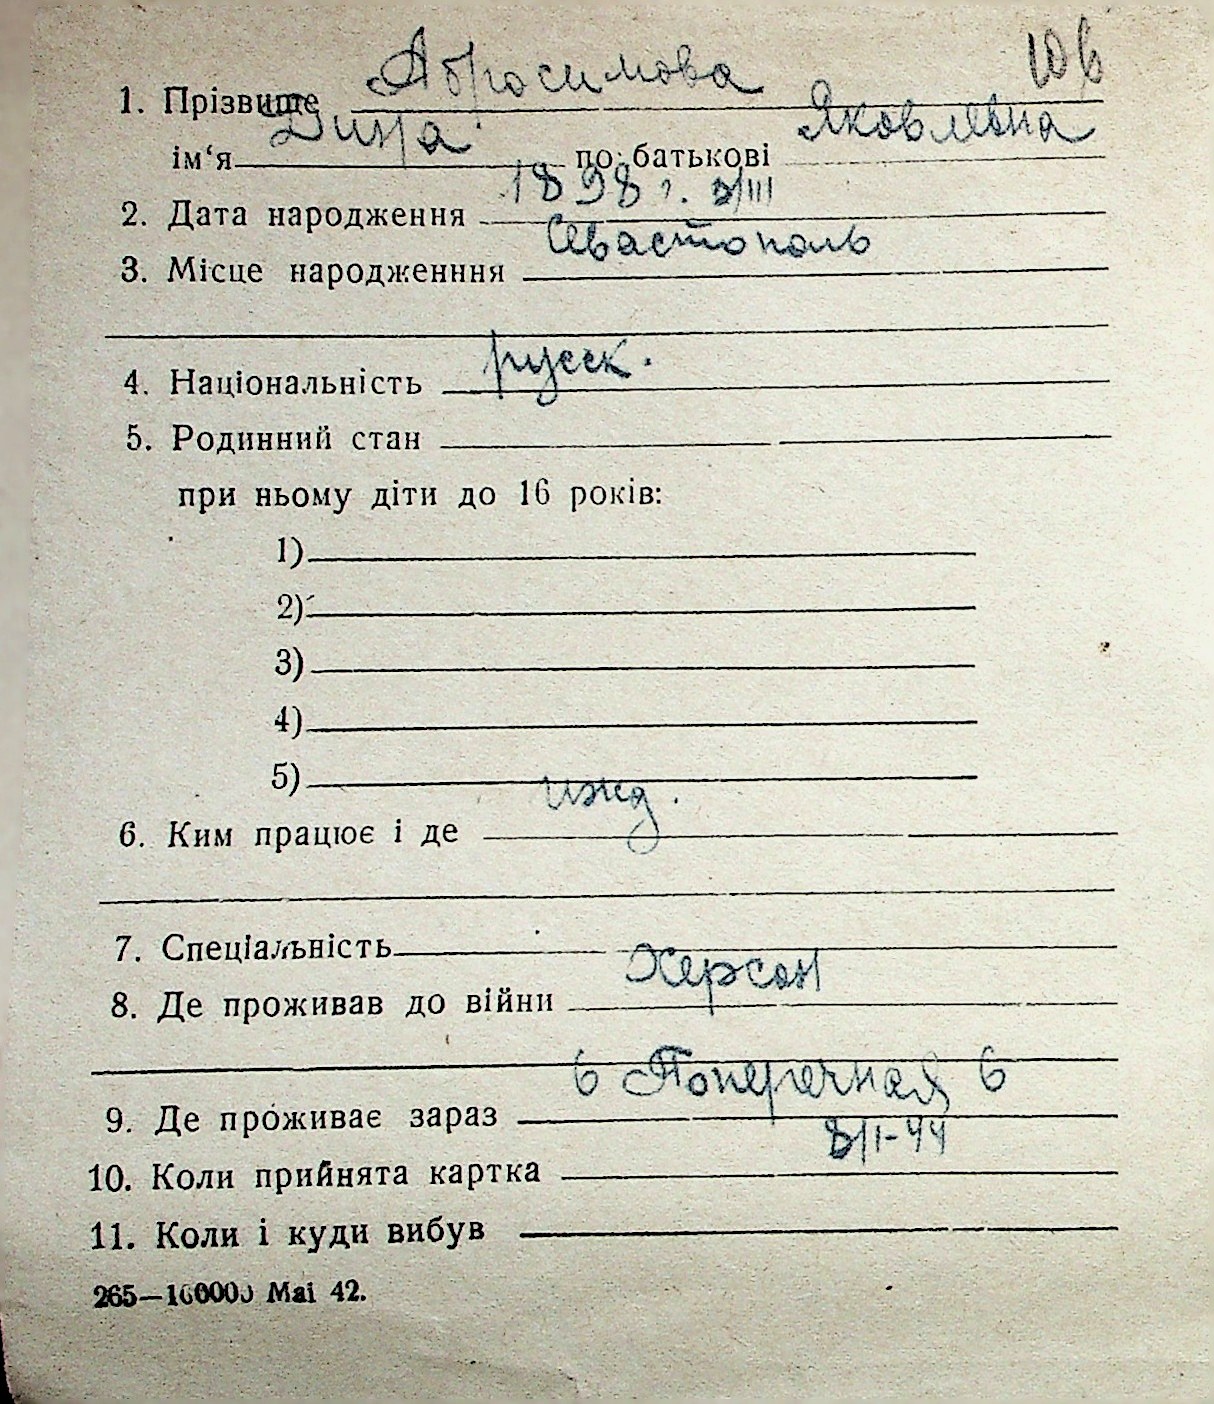 Абросимова 10б
1. Прізвище
Дина Яковлевна
ім‘я по батькові
1898 г. 2/III
2. Дата народження
Севастополь
3. Місце народженння
русск.
4. Національність
5. Родинний стан
при ньому діти до 16 років:
1)
2)
3)
4)
5)
ижд.
6. Ким працює і де
7. Спеціальність
Херсон
8. Де проживав до війни
6 Поперечная 6
9. Де проживає зараз
8/I-44
10. Коли прийнята картка
11. Коли і куди вибув
265—100000 Mai 42.